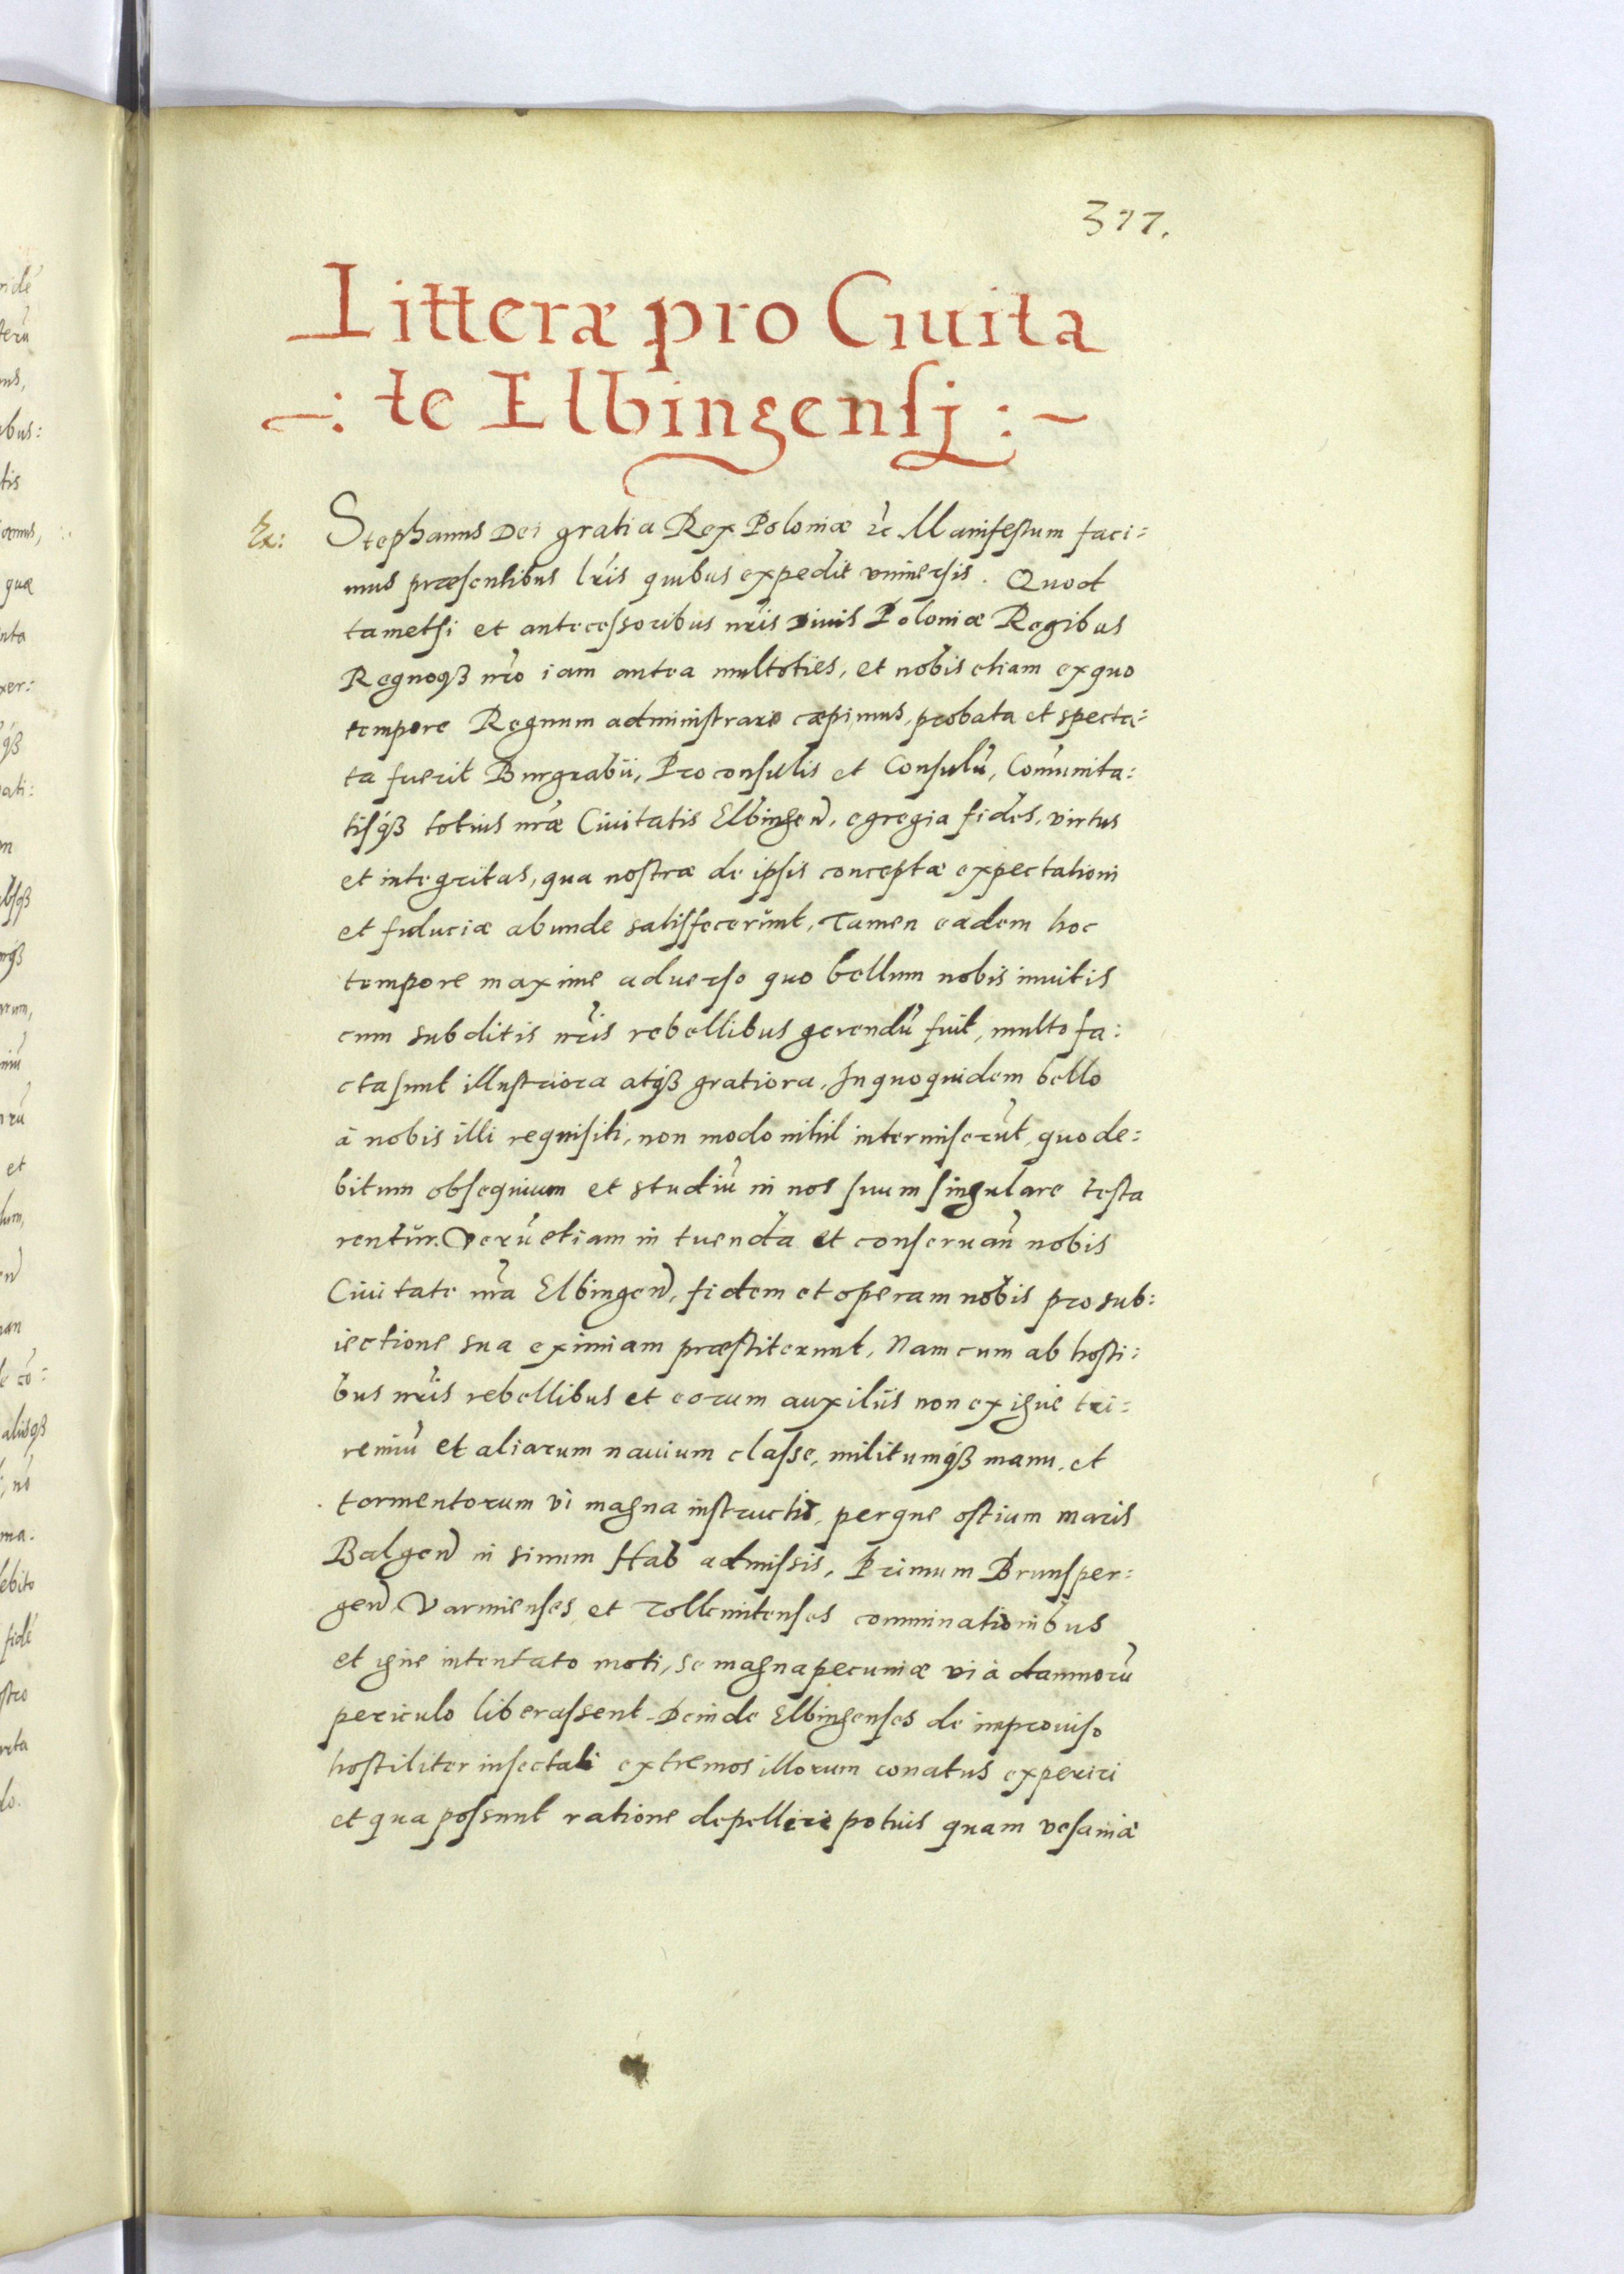 377.
Litteræ pro Ciuita
~: te Elbingensj :~
Ex:
Stephanus Dei gratia Rex Poloniæ &c Manifestum faci:
mus præsentibus lris quibus expedit vniuersis. Quod
tametsi et antecessoribus nris Diuis Poloniæ Regibus
Regnoqß nro iam antea multoties, et nobis etiam ex quo
tempore Regnum administrare cæpimus, probata et specta:
ta fuerit Burgrabii, Proconsulis et Consulū, Comunita:
tisqß totius nræ Ciuitatis Elbingen, egregia fides, virtus
et integritas, qua nostræ de ipsis conceptæ expectationi
et fiduciæ abunde satisfecerunt, Tamen eadem hoc
tempore maxime aduerso quo bellum nobis inuitis
cum subditis nris rebellibus gerendū fuit, multo fa:
cta sunt illustriora atqß gratiora, In quo quidem bello
à nobis illi requisiti, non modo nihil intermiserūt, quo de:
bitum obsequium et studiū in nos suum singulare testa
rentur. Verū etiam in tuenda et conseruan nobis
Ciuitate nra Elbingen, fidem et operam nobis pro sub:
iectione sua eximiam præstiterunt, Nam cum ab hosti:
bus nris rebellibus et eorum auxiliis non exigue tri:
remiū et aliarum nauium classe, militumqß manu, et
tormentorum vi magna instructis, perque ostium maris
Balgen in sinum Hab admissis, Primum Brunsper:
gen Varmienses et Tollemitenses comminationibus
et igne intentato moti, se magna pecuniæ vi à damnorū
periculo liberassent. Deinde Elbingenses de improuiso
hostiliter insectati extremos illorum conatus experiri
et qua possunt ratione depellere potius quam vesaniæ